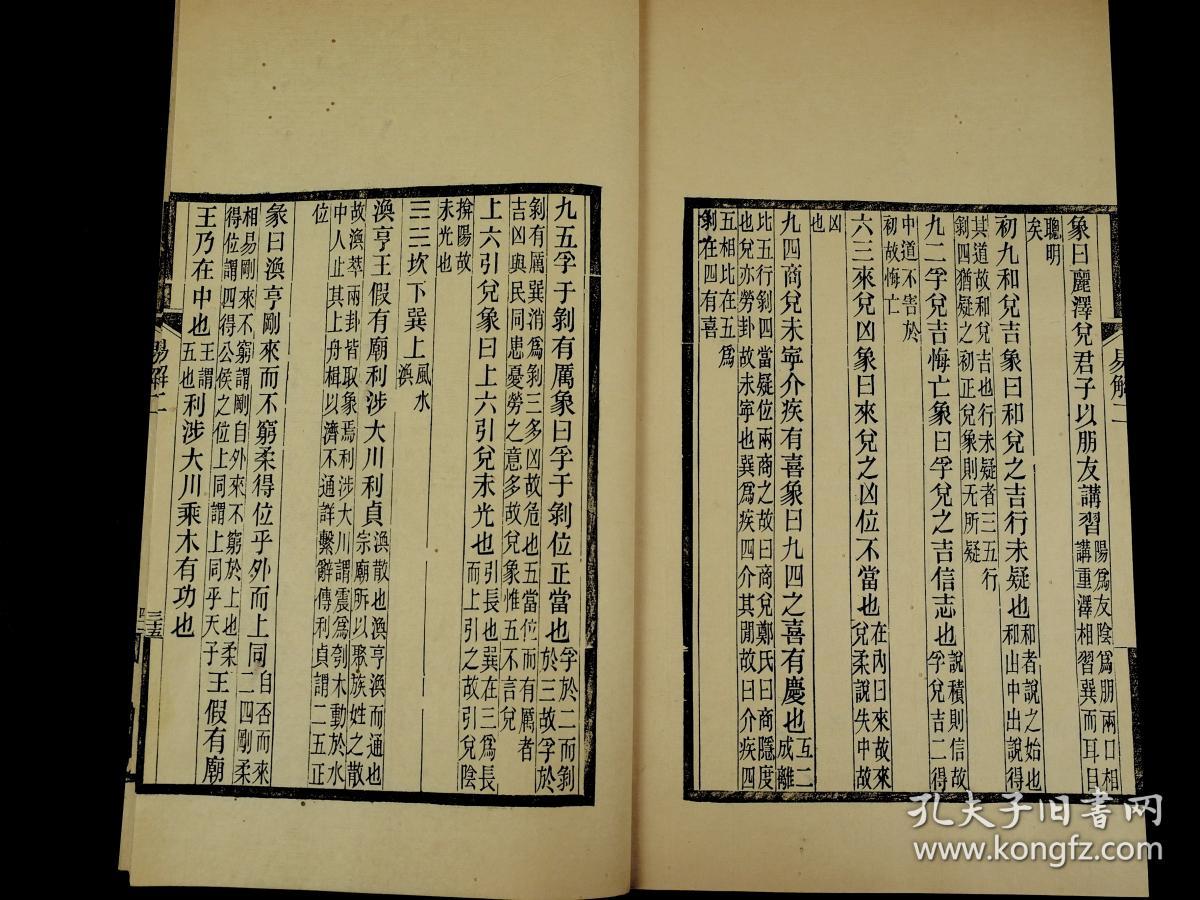 象曰麗澤兌君子以朋友講習陽爲友陰爲朋兩口相
講重澤相習巽而耳目
聰明
矣
初九和兌吉象曰和兌之吉行未疑也和者說之始也
和出中出說得
其道故和兌吉也行未疑者三五行
剝四猶疑之初正兌象則无所疑
九二孚兌吉悔亡象曰孚兌之吉信志也說積則信故
孚兌吉二得
中道不咎於
初故悔亡
六三來兌凶象曰來兌之凶位不當也在內曰來故來
兌柔說失中故
凶
也
九四商兌未寧介疾有喜象曰九四之喜有慶也互二
成離
比五行剝四當疑位兩商之故曰商兌鄭氏曰商隱度
也兌亦勞卦故未寧也巽爲疾四介其閒故曰介疾四
五相比在五爲
剝在四有喜
易解二
九五孚于剝有厲象曰孚于剝位正當也孚於二而剝
於三故孚於
剝有厲巽消爲剝三多凶故危也五當位而有厲者
吉凶與民同患憂勞之意多故兌象惟五不言兌
上六引兌象曰上六引兌未光也引長也巽在三爲長
而上引之故引兌陰
揜陽故
未光也
☵☴坎下巽上風水
渙
渙亨王假有廟利涉大川利貞渙散也渙亨渙而通也
宗廟所以聚族姓之散
故渙萃兩卦皆取象焉利涉大川謂震爲刳木動於水
中人止其上舟楫以濟不通詳繫辭傳利貞謂二五正
位
彖曰渙亨剛來而不窮柔得位乎外而上同自否而來
二四剛柔
相易剛來不窮謂剛自外來不窮於上也柔
得位謂四得公侯之位上同謂上同乎天子王假有廟
王乃在中也王謂
五也利涉大川乘木有功也
易解二
孔夫子旧书网
www.kongfz.com